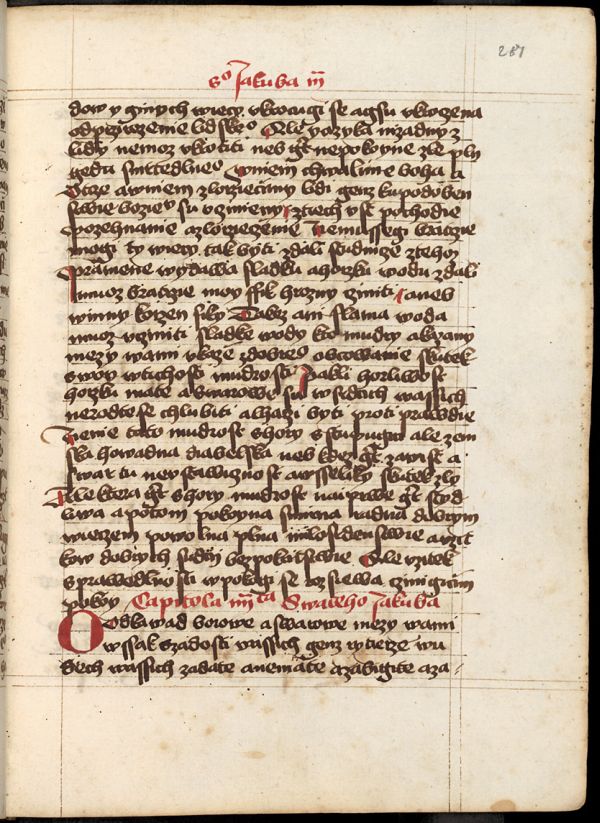 287
s° Jakuba iij
dow y ginych wieczy vkroczugi se agsu vkroczena
od przirozenie lidske° Ale yazyka nizadny z
lidy nemoz vkrotiti neb gt nepokoyne zle pln
gedu smrtedlne° wniem chwalime boha a
Otcze awniem zlorzieczimy lidi genz kupodoben
stwie bozie° su vczinieny ztiech vst pochodie
pozehnanie azlorzieczenie Nemussegi bratrzie
mogi ty wieczy tak byti zdali studnicze ztehoz
pramene wydawa sladku ahorzku wodu zdali
muoz bratrzie moy fik hrozny cziniti aneb
winny korzen fiky Takez ani slana woda
muoz vcziniti sladke wody kto mudry akazany
mezy wami vkaz zdobre° obcowanie skutek
swoy wtichosti mudrosti Jakli horliwost
horzku mate aswarowe su wsrdcich wassich
nerodte se chlubiti alhazi byti proti prawdie
Nenie tato mudrost shory sstupugicz ale zem
ska howadna diabelska neb kdez gt zawist a
swar tu neustawiznost awsseliky skutek zly
Ale ktera gt shory mudrost naiprwe gt styd
liwa apotom pokoyna smirna radna dobrym
wieczem powolna plna milosrdenstwie avzit
kow dobrych sudiczy bezpokrytstwie Ale vzitek
sprawedlnosti wpokogi se rozsiewa czinigiczim
pokoy Capitola iiijta Swateho Jakuba
Odkawad bogowe aswarowe mezy wami
wssak zzadosti wassich genz rytierze wu
dech wassich zadate anemate azabigiete aza